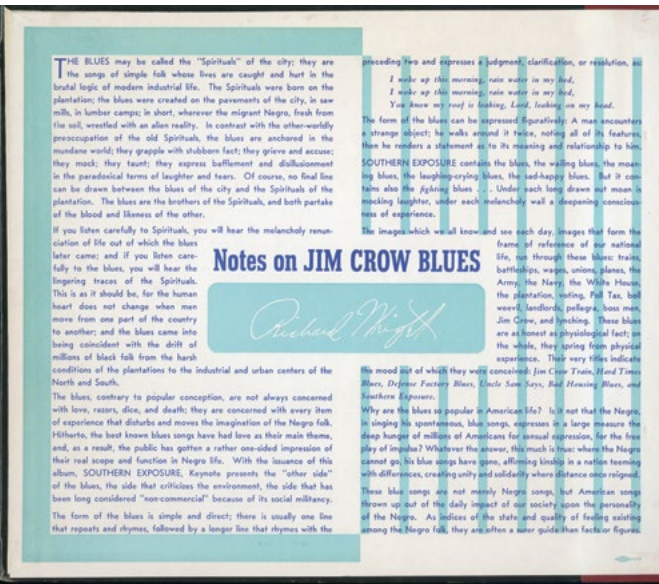 THE BLUES may be called the "Spirituals" of the city; they are
the songs of simple folk whose lives are caught and hurt in the
brutal logic of modern industrial life. The Spirituals were born on the
plantation; the blues were created on the pavements of the city, in saw
mills, in lumber camps; in short, wherever the migrant Negro, fresh from
the soil, wrestled with an alien reality. In contrast with the other-worldly
preoccupation of the old Spirituals, the blues are anchored in the
mundane world; they grapple with stubborn fact; they grieve and accuse;
they mock; they taunt; they express bafflement and disillusionment
in the paradoxical terms of laughter and tears. Of course, no final line
can be drawn between the blues of the city and the Spirituals of the
plantation. The blues are the brothers of the Spirituals, and both partake
of the blood and likeness of the other.
If you listen carefully to Spirituals, you will hear the melancholy renun-
ciation of life out of which the blues
later came; and if you listen care-
fully to the blues, you will hear the
lingering traces of the Spirituals.
This is as it should be, for the human
heart does not change when men
move from one part of the country
to another; and the blues came into
being coincident with the drift of
millions of black folk from the harsh
conditions of the plantations to the industrial and urban centers of the
North and South.
The blues, contrary to popular conception, are not always concerned
with love, razors, dice, and death; they are concerned with every item
of experience that disturbs and moves the imagination of the Negro folk.
Hitherto, the best known blues songs have had love as their main theme,
and, as a result, the public has gotten a rather one-sided impression of
their real scope and function in Negro life. With the issuance of this
album, SOUTHERN EXPOSURE, Keynote presents the "other side"
of the blues, the side that criticizes the environment, the side that has
been long considered "non-commercial" because of its social militancy.
The form of the blues is simple and direct; there is usually one line
that repeats and rhymes, followed by a longer line that rhymes with the
Notes on JIM CROW BLUES
Richard Wright
preceding two and expresses a judgment, clarification, or resolution, as:
I woke up this morning, rain water in my bed,
I woke up this morning, rain water in my bed,
You know my roof is leaking, Lord, leaking on my head.
The form of the blues can be expressed figuratively: A man encounters
a strange object; he walks around it twice, noting all of its features,
then he renders a statement as to its meaning and relationship to him.
SOUTHERN EXPOSURE contains the blues, the wailing blues, the moan-
ing blues, the laughing-crying blues, the sad-happy blues. But it con-
tains also the fighting blues . . . Under each long drawn out moan is
mocking laughter, under each melancholy wail a deepening conscious-
ness of experience.
The images which we all know and see each day, images that form the
frame of reference of our national
life, run through these blues: trains,
battleships, wages, unions, planes, the
Army, the Navy, the White House,
the plantation, voting, Poll Tax, boll
weevil, landlords, pellagra, boss men,
Jim Crow, and lynching. These blues
are as honest as physiological fact; on
the whole, they spring from physical
experience. Their very titles indicate
the mood out of which they were conceived: Jim Crow Train, Hard Times
Blues, Defense Factory Blues, Uncle Sam Says, Bad Housing Blues, and
Southern Exposure.
Why are the blues so popular in American life? Is it not that the Negro,
in singing his spontaneous, blue songs, expresses in a large measure the
deep hunger of millions of Americans for sensual expression, for the free
play of impulse? Whatever the answer, this much is true: where the Negro
cannot go, his blue songs have gone, affirming kinship in a nation teeming
with differences, creating unity and solidarity where distance once reigned.
These blue songs are not merely Negro songs, but American songs
thrown up out of the daily impact of our society upon the personality
of the Negro. As indices of the state and quality of feeling existing
among the Negro folk, they are often a surer guide than facts or figures.